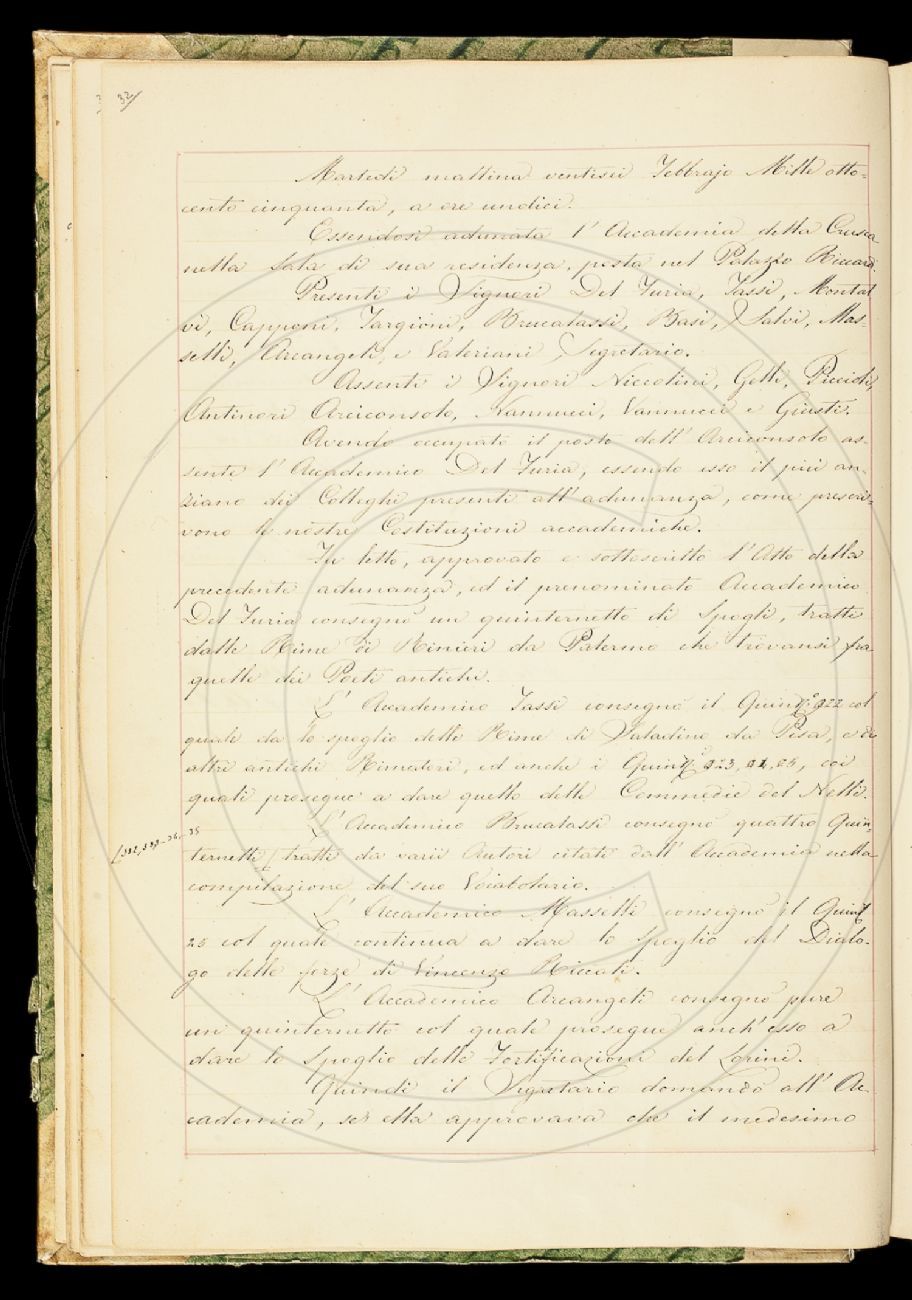 32
Martedì mattina ventisei Febbrajo Mille otto-
cento cinquanta, a ore undici.
Essendosi adunata l'Accademia della Crusca
nella sala di sua residenza, posta nel Palazzo Riccardi.
Presenti i Signori Del Furia, Tassi, Montal
vi, Capponi, Targioni, Brucalassi, Basi, Salvi, Mas-
selli, Arcangeli, e Valeriani Segretario.
Assenti i Signori Niccolini, Gelli, Piccioli,
Antinori Arciconsolo, Nannucci, Vannucci e Giusti.
Avendo occupato il posto dell'Arciconsolo as-
sente l'Accademico Del Furia, essendo esso il più an-
ziano dei Colleghi presenti all'adunanza, come prescri-
vono le nostre Costituzioni accademiche.
Fu letto, approvato e sottoscritto l'Atto della
precedente adunanza, ed il prenominato Accademico
Del Furia consegnò un quinternetto di Spogli, tratti
dalle Rime di Rinieri da Palermo che trovansi fra
quelle dei Poeti antichi.
L'Accademico Tassi consegnò il Quint. n.° 922 col
quale dà lo spoglio delle Rime di Saladino da Pisa, e di
altri antichi Rimatori, ed anche i Quint. 923, 24, 25, coi
quali prosegue a dare quello delle Commedie del Nelli.
L'Accademico Brucalassi consegnò quattro Quin-
ternetti tratti da varii Autori citati dall'Accademia nella
compilazione del suo Vocabolario.
L'Accademico Masselli consegnò il Quint.
25 col quale continua a dare lo Spoglio del Dialo-
go delle forze di Vincenzo Riccati.
L'Accademico Arcangeli consegnò pure
un quinternetto col quale prosegue anch'esso a
dare lo Spoglio delle Fortificazioni del Lorini.
Quindi il Segretario domandò all'Ac-
cademia, se ella approvava che il medesimo